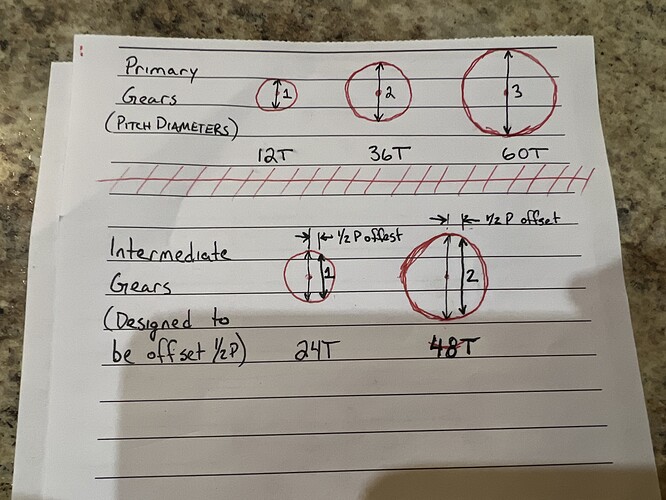 Primary
Gears
(PITCH DIAMETERS)
1
2
3
12T
36T
60T
1/2 P offest
1/2 P offset
Intermediate
Gears
(Designed to
be offset 1/2 P)
1
2
24T
48T